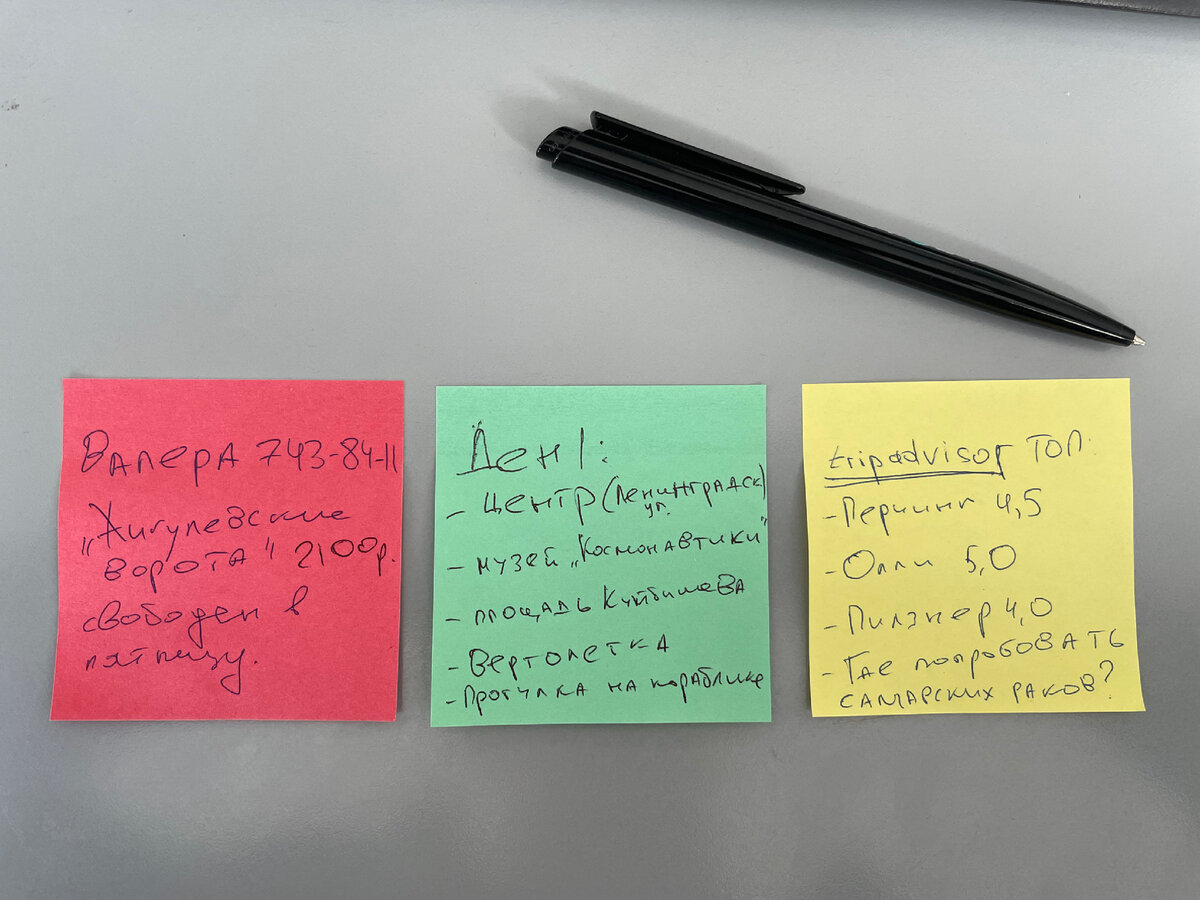 Валера 743-84-11
„Жигулевские
ворота" 2100р.
свободен в
пятницу.
Ден 1:
- Центр (Ленинградск)
ул.
- музей „Космонавтики"
- площадь Куйбишева
- Вертолетка
- Прогулка на кораблике
tripadvisor ТОП:
- Перчинк 4,5
- Олли 5,0
- Пилзнер 4,0
- Где попробовать
самарских раков?